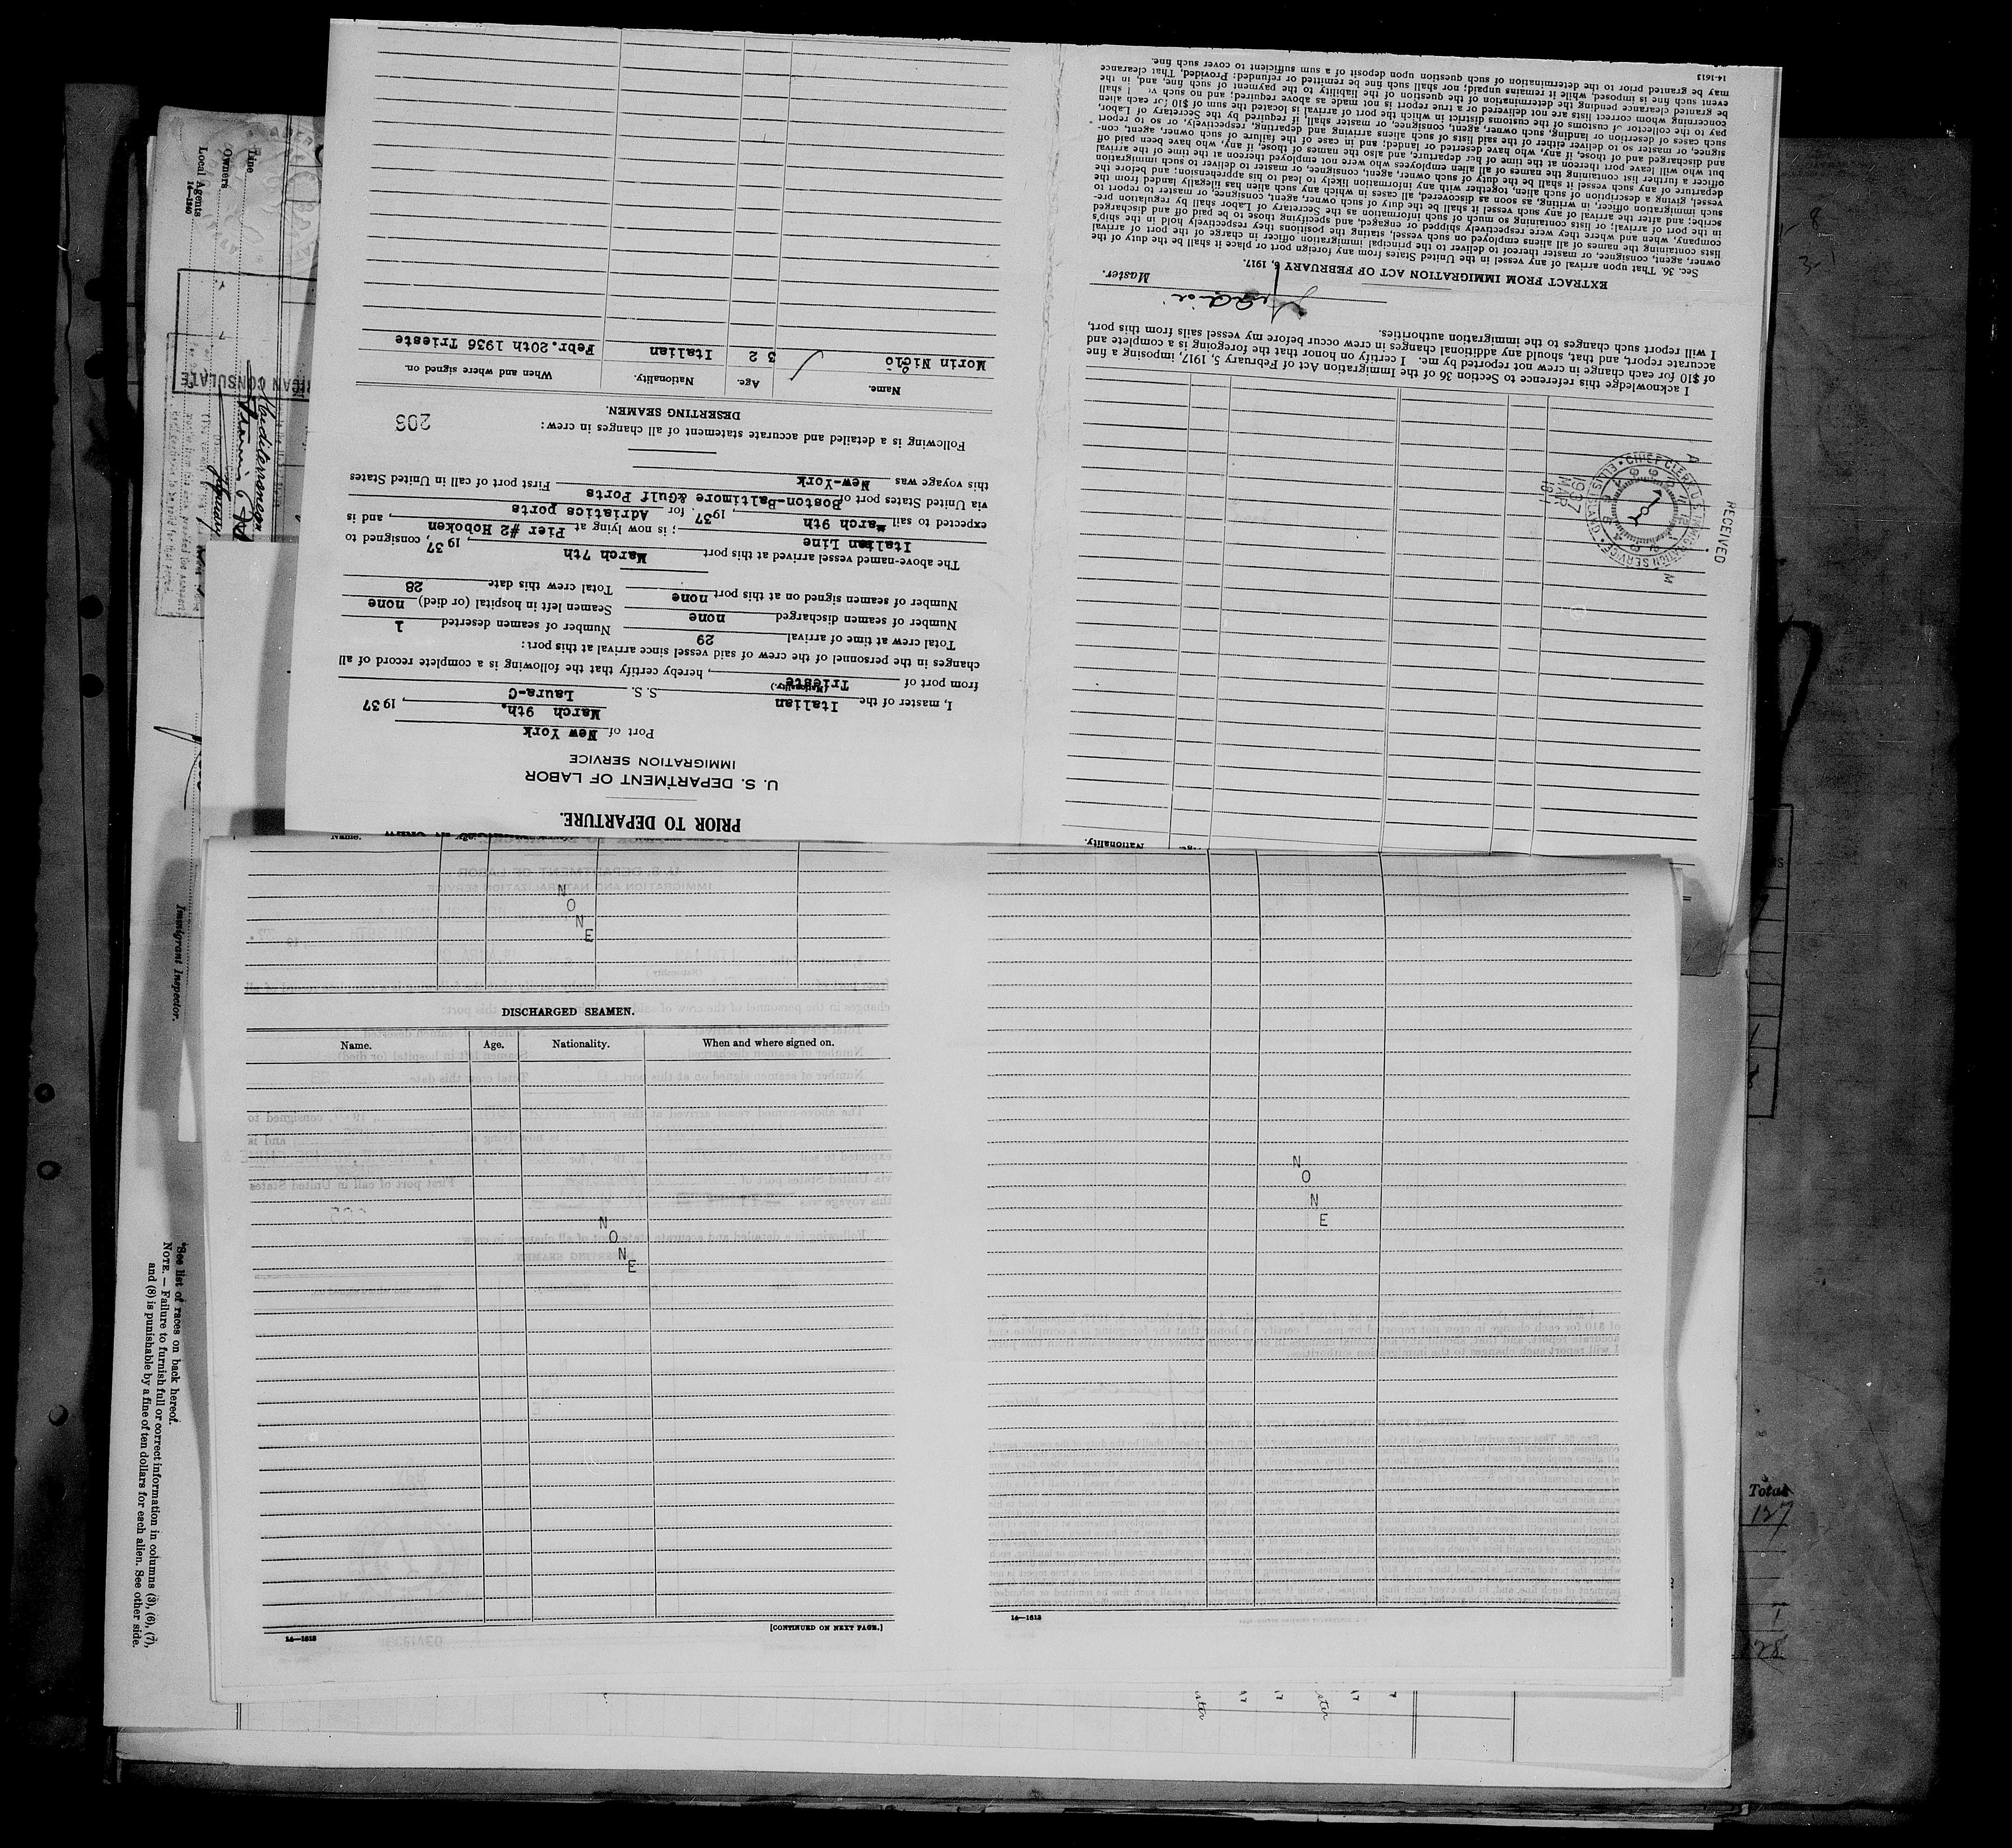 PRIOR TO DEPARTURE.
U. S. DEPARTMENT OF LABOR
IMMIGRATION SERVICE
Port of New York
March 9th, , 1937
I, master of the Italian S. S. Laura-C
(Nationality.)
from port of Trieste, hereby certify that the following is a complete record of all
changes in the personnel of the crew of said vessel since arrival at this port:
Total crew at time of arrival 29 Number of seamen deserted 1
Number of seamen discharged none Seamen left in hospital (or died) none
Number of seamen signed on at this port none Total crew this date 28
The above-named vessel arrived at this port March 7th, 1937, consigned to
Italian Line; is now lying at Pier #2 Hoboken, and is
expected to sail March 9th, 1937. for Adriatics ports
via United States port of Boston-Baltimore &Gulf Ports
this voyage was New-York First port of call in United States
Following is a detailed and accurate statement of all changes in crew:
206
DESERTING SEAMEN.
Name. Age. Nationality. When and where signed on.
Morin Nició 32 Italian Febr.20th 1936 Trieste
Nationality.
RECEIVED
CHIEF CLERK U.S. IMMIGRATION SERVICE ELLIS ISLAND
1937
MAR
A
M
I acknowledge this reference to Section 36 of the Immigration Act of February 5, 1917, imposing a fine
of $10 for each change in crew not reported by me. I certify on honor that the foregoing is a complete and
accurate report, and that, should any additional changes in crew occur before my vessel sails from this port,
I will report such changes to the immigration authorities.
Master.
EXTRACT FROM IMMIGRATION ACT OF FEBRUARY 5, 1917.
Sec. 36. That upon arrival of any vessel in the United States from any foreign port or place it shall be the duty of the
owner, agent, consignee, or master thereof to deliver to the principal immigration officer in charge of the port of arrival
lists containing the names of all aliens employed on such vessel, stating the positions they respectively hold in the ship's
company, when and where they were respectively shipped or engaged, and specifying those to be paid off and discharged
in the port of arrival; or lists containing so much of such information as the Secretary of Labor shall by regulation pre-
scribe; and after the arrival of any such vessel it shall be the duty of such owner, agent, consignee, or master to report to
such immigration officer, in writing, as soon as discovered, all cases in which any such alien has illegally landed from the
vessel, giving a description of such alien, together with any information likely to lead to his apprehension; and before the
departure of any such vessel it shall be the duty of such owner, agent, consignee, or master to deliver to such immigration
officer a further list containing the names of all alien employees who were not employed thereon at the time of the arrival
but who will leave port thereon at the time of her departure, and also the names of those, if any, who have been paid off
and discharged and of those, if any, who have deserted or landed; and in case of the failure of such owner, agent, con-
signee, or master so to deliver either of the said lists of such aliens arriving and departing, respectively, or so to report
such cases of desertion or landing, such owner, agent, consignee, or master shall, if required by the Secretary of Labor,
pay to the collector of customs of the customs district in which the port of arrival is located the sum of $10 for each alien
concerning whom correct lists are not delivered or a true report is not made as above required; and no such shall
be granted clearance pending the determination of the question of the liability to the payment of such fine, and, in the
event such fine is imposed, while it remains unpaid; nor shall such fine be remitted or refunded: Provided, That clearance
may be granted prior to the determination of such question upon deposit of a sum sufficient to cover such fine.
14-1613
Name.
N
O
N
E
DISCHARGED SEAMEN.
Name. Age. Nationality. When and where signed on.
N
O
N
E
14—1613
[CONTINUED ON NEXT PAGE.]
N
O
N
E
14—1613
Line
Owners
Local Agents
14—1240
CONSULATE
Immigrant Inspector.
*See list of races on back hereof.
NOTE.—Failure to furnish full or correct information in columns (3), (6), (7),
and (8) is punishable by a fine of ten dollars for each alien. See other side.
Total
127
1
128